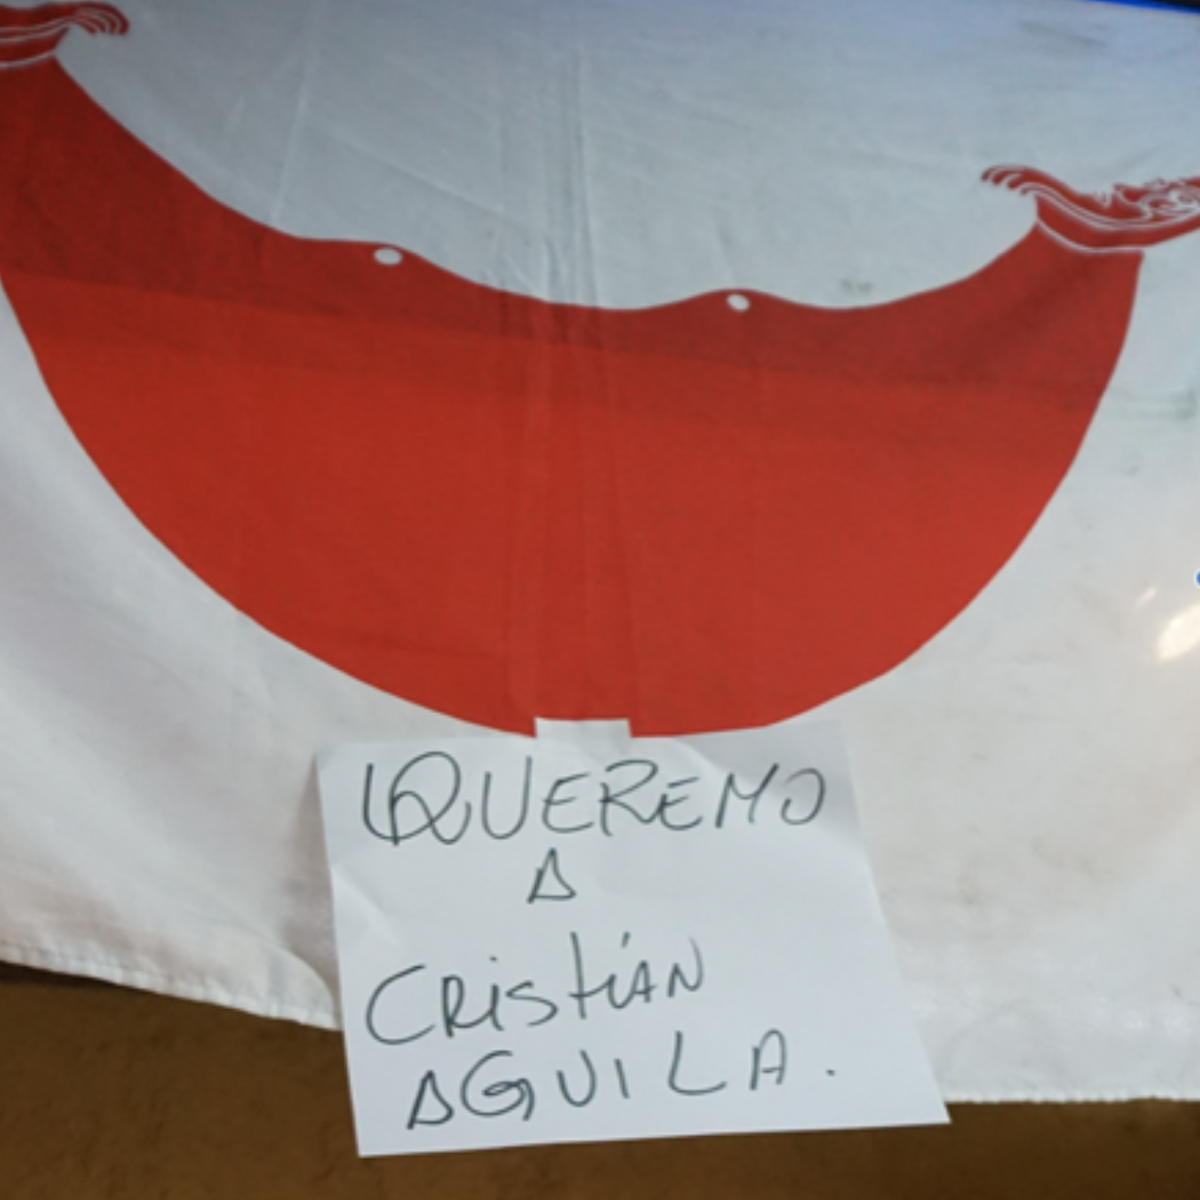 QUEREMO
A
CRISTIÁN
AGUILA.